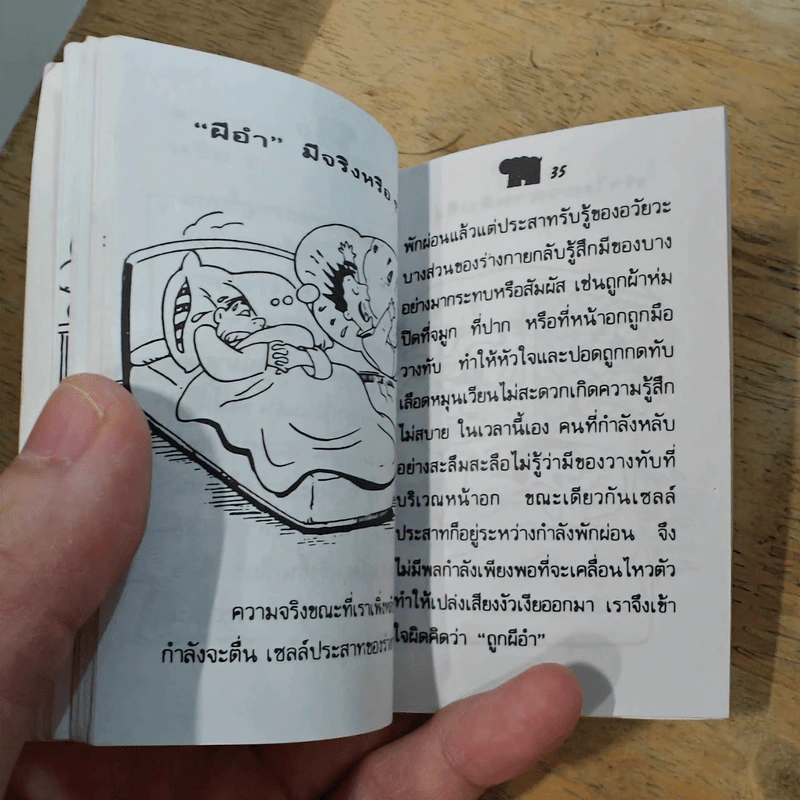 “ผีอำ” มีจริงหรือ
ความจริงขณะที่เราเพิ่ง
กำลังจะตื่น เซลล์ประสาทของ
35
พักผ่อนแล้วแต่ประสาทรับรู้ของอวัยวะ
บางส่วนของร่างกายกลับรู้สึกมีของบาง
อย่างมากระทบหรือสัมผัส เช่นถูกผ้าห่ม
ปิดที่จมูก ที่ปาก หรือที่หน้าอกถูกมือ
วางทับ ทำให้หัวใจและปอดถูกกดทับ
เลือดหมุนเวียนไม่สะดวกเกิดความรู้สึก
ไม่สบาย ในเวลานี้เอง คนที่กำลังหลับ
อย่างสะลึมสะลือไม่รู้ว่ามีของวางทับที่
บริเวณหน้าอก ขณะเดียวกันเซลล์
ประสาทก็อยู่ระหว่างกำลังพักผ่อน จึง
ไม่มีพลกำลังเพียงพอที่จะเคลื่อนไหวตัว
ทำให้เปล่งเสียงงัวเงียออกมา เราจึงเข้า
ใจผิดคิดว่า “ถูกผีอำ”